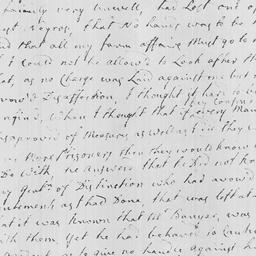 very unwell, had Lost one of
Negros, that No harm was to be
and that all my farm affairs must go to
I could not be allow'd to Look after th
that, as no Charge was Laid against me but
avow'd Disaffection, I thought it hard to be
Confin'd, when I thought that if every Man
they confin'd
disapproved of Measures as well as if they
more Prisoners than they would know
Do With he answered that he Did not know
any Gentn. of Distinction who had avow'd
sentiments as I had Done, that was left at
that it was known that Mr Banyar, was
with them, yet he had behaved so Cautio
as to give no handle against hi